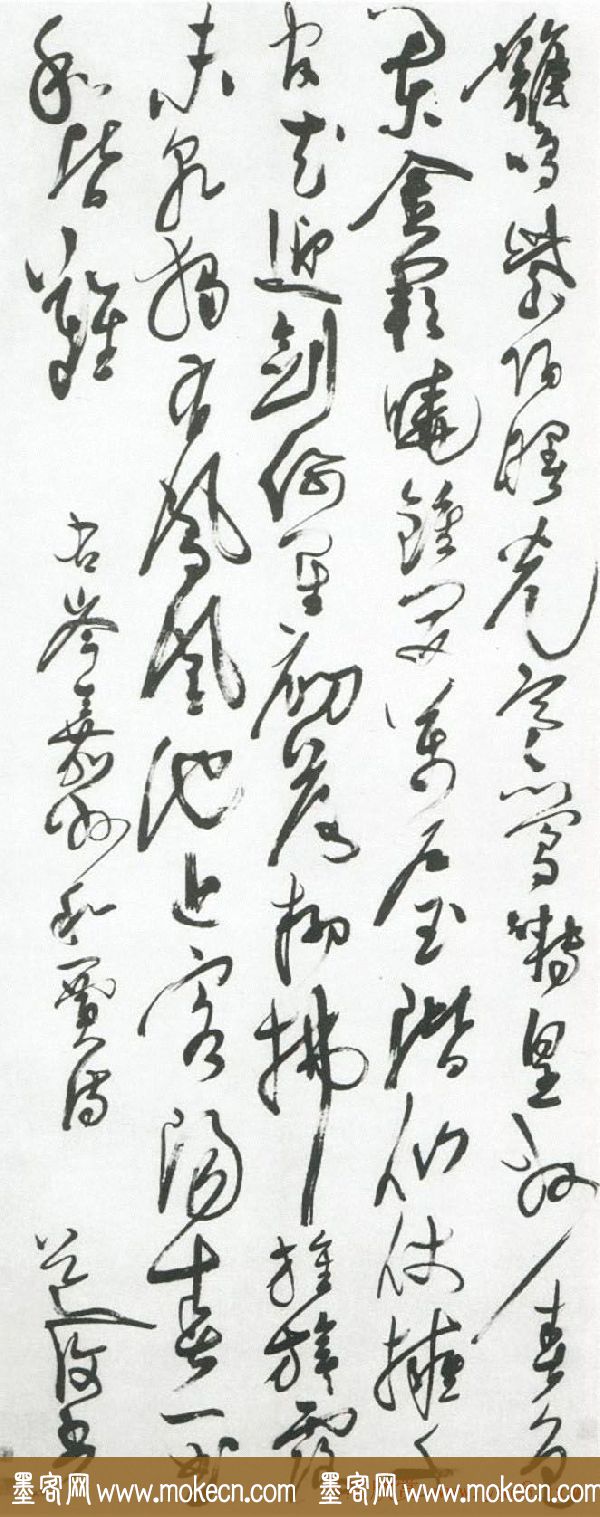 雞鳴紫陌曙光寒鶯囀皇州春色
闌金闕曉鐘開萬戶玉階仙仗擁千
官花迎劍佩星初落柳拂旌旗露
未乾獨有鳳凰池上客陽春一曲
和皆難
右岑嘉州和賈詩
道復書
墨客网 www.mokecn.com 墨客网 www.mokecn.com